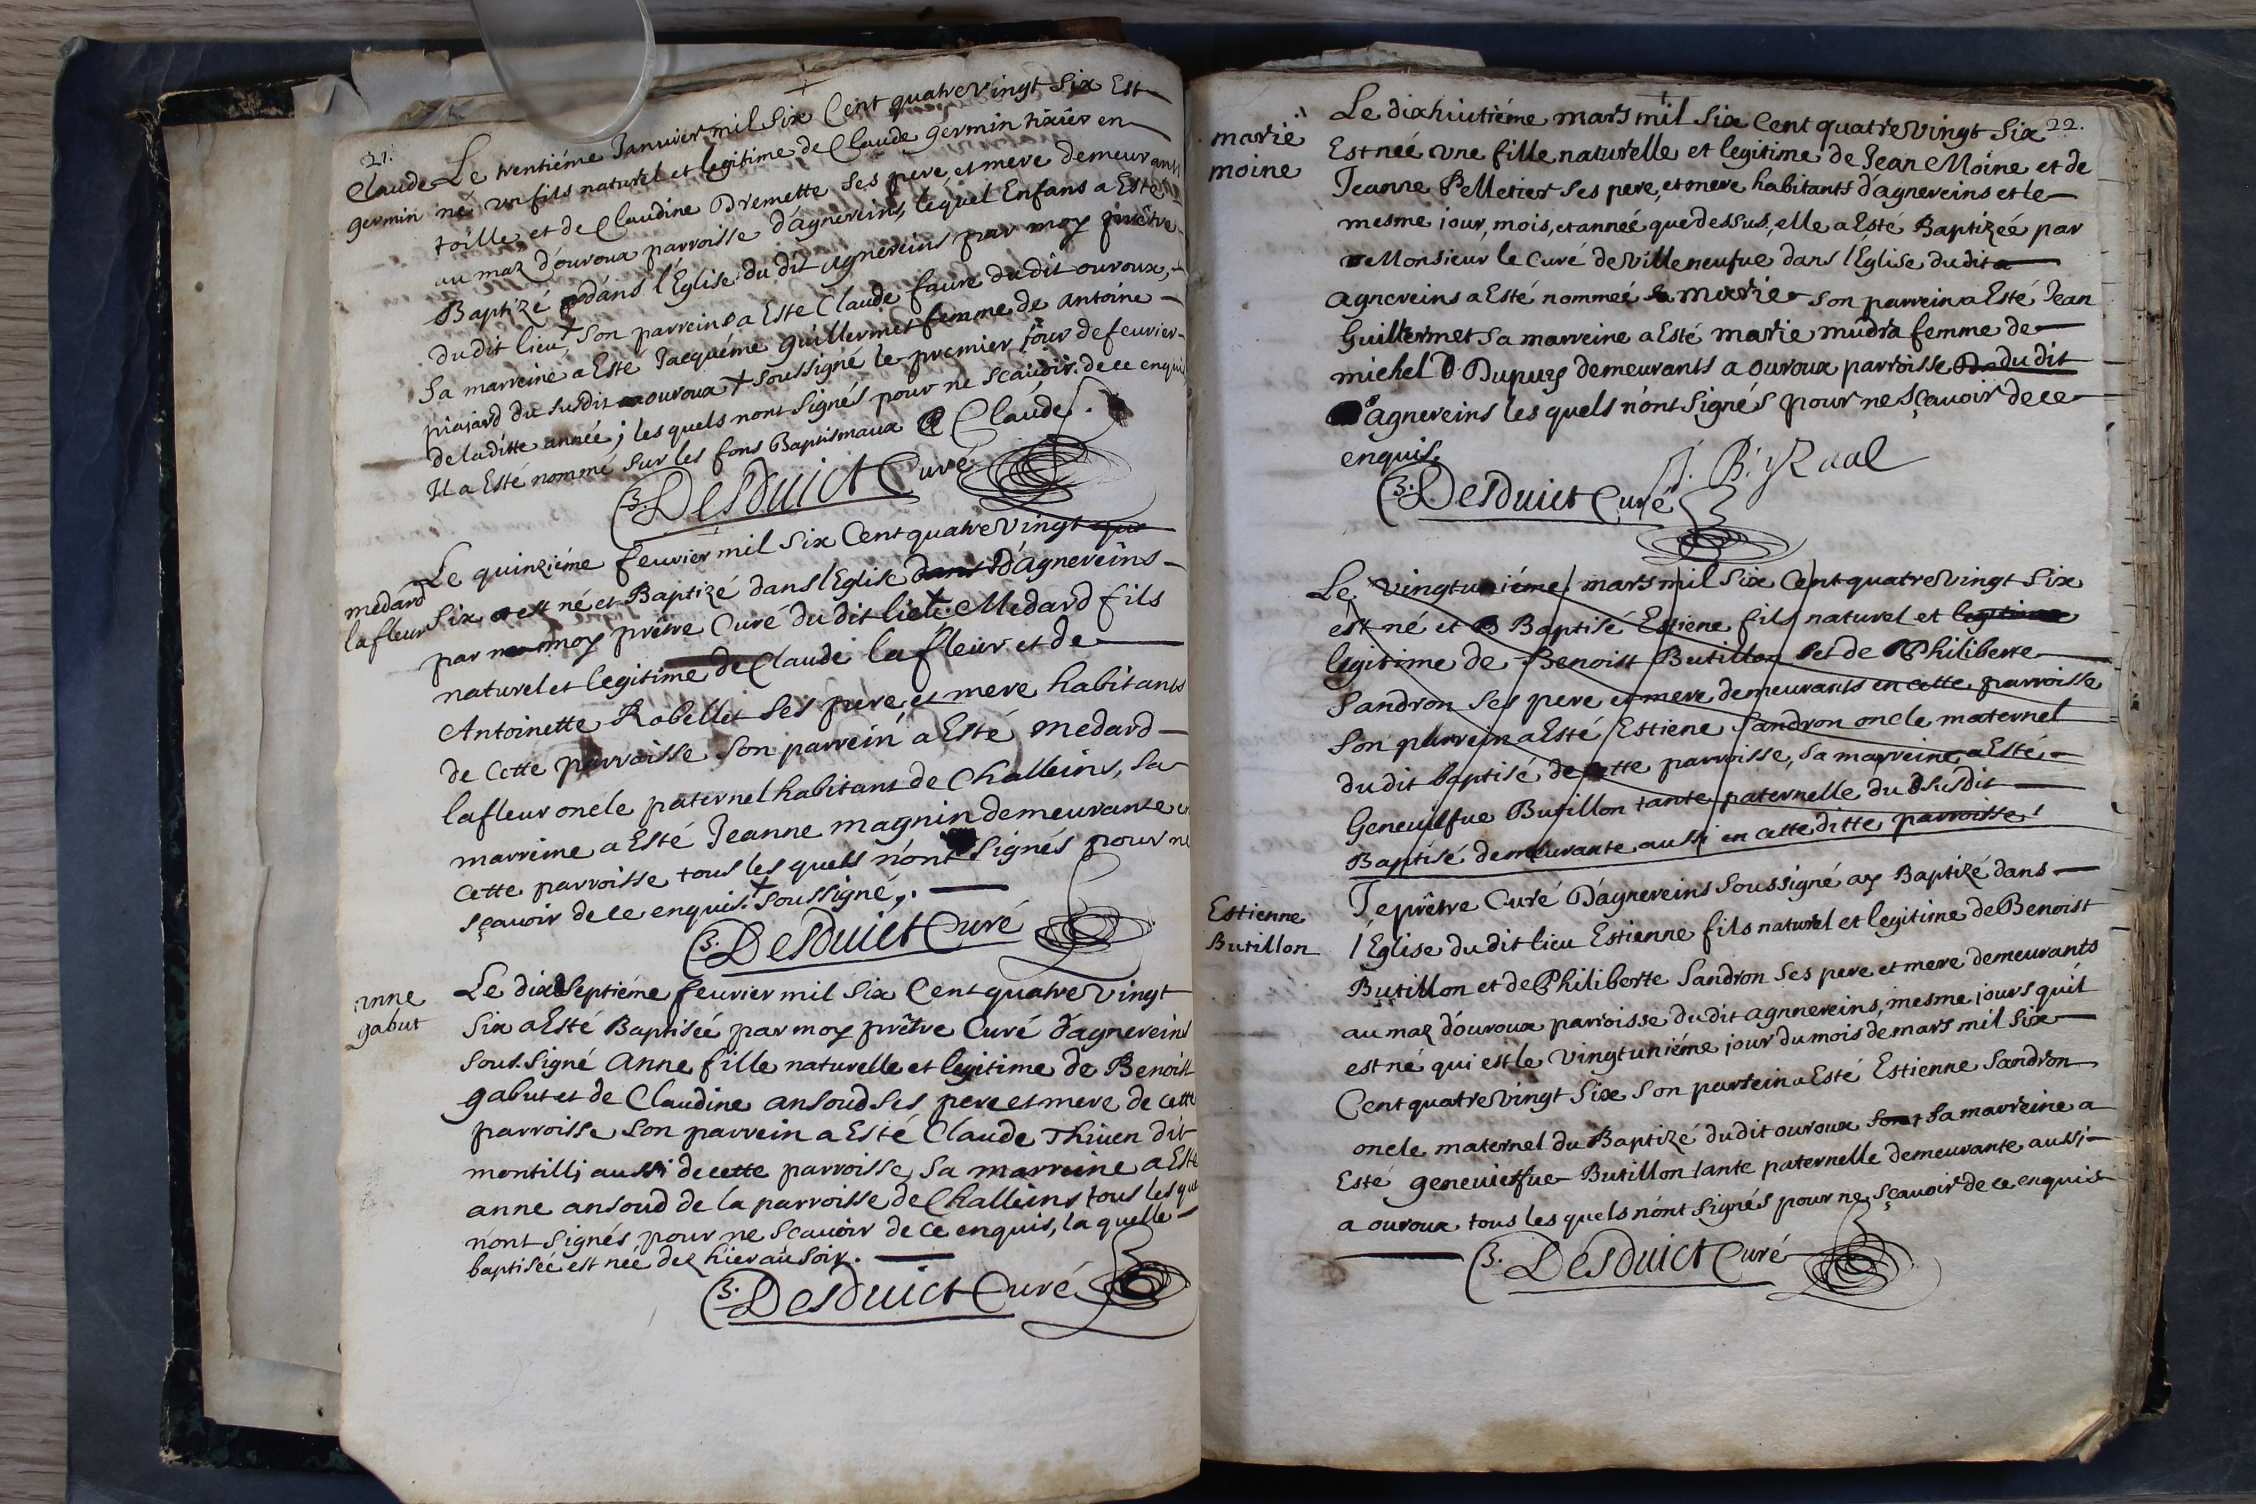 21.
Claude
germin
Le trentiéme Januier mil six Cent quatre Vingt six Est
né un fils naturel et legitime de Claude germin tixier en
toille et de Claudine Dremette ses pere, et mere demeurants
au maz d'ouroux parroisse d'agnereins, lequel Enfans a Esté
Baptizé dans l'Eglise du dit agnereins par moy prêtre
du dit lieu, son parrein a Esté Claude faure du dit ouroux,
sa marreine a Esté Jacquéme guillermet femme de antoine
piajard du susdit ouroux + soussigné le premier jour de feurier
de la ditte année; les quels n'ont signés pour ne scauoir de ce enquis
Il a Esté nommé sur les fons Baptismaux Claude.
Desduict Curé
medard
lafleur
Le quinziéme feurier mil six Cent quatre Vingt
six est né et Baptizé dans l'Eglise d'agnereins
par moy prêtre Curé du dit lieu + Medard fils
naturel et legitime de Claude lafleur et de
Antoinette Robellet ses pere, et mere habitants
de Cette parroisse son parrein a Esté medard
lafleur oncle paternel habitant de Challeins, sa
marreine a Esté Jeanne magnin demeurante en
Cette parroisse tous les quels n'ont signés pour ne
sçauoir de ce enquis. + soussigné,.
Desduict Curé
anne
gabut
Le dix septiéme feurier mil six Cent quatre Vingt
six a Esté Baptisée par moy prêtre Curé d'agnereins
sous-signé Anne fille naturelle et legitime de Benoist
gabut et de Claudine ansoud ses pere et mere de cette
parroisse son parrein a Esté Claude Thiuen dit
montilli aussi de cette parroisse, sa marreine a Esté
anne ansoud de la parroisse de Challeins tous les quels
n'ont signés pour ne scauoir de ce enquis, la quelle
baptisée est née dez hier au soir.
Desduict Curé
22.
marie
moine
Le dixhuitiéme mars mil six Cent quatre Vingt six
Est née une fille naturelle et legitime de Jean Moine et de
Jeanne Pelletier ses pere, et mere habitants d'agnereins et le
mesme jour, mois, et année que dessus, elle a Esté Baptizée par
Monsieur le Curé de Villeneufue dans l'Eglise du dit
agnereins a Esté nommeé marie son parrein a Esté Jean
Guillermet sa marreine a Esté marie mudra femme de
michel Dupuy demeurants a ouroux parroisse du dit
agnereins les quels n'ont signés pour ne sçauoir de ce
enquis.
Desduict Curé
Le Vingtuniéme mars mil six Cent quatre Vingt six
est né et Baptisé Estiene fils naturel et legitime
legitime de Benoist Butillon et de Philiberte
Sandron ses pere et mere demeurants en cette parroisse
son parrein a Esté Estiene Sandron oncle maternel
du dit baptisé de cette parroisse, sa marreine a Esté
Geneuiefue Butillon tante paternelle du susdit
Baptisé demeurante aussi en cette ditte parroisse.
Estienne
Butillon
Je prêtre Curé d'agnereins soussigné ay Baptizé dans
l'Eglise du dit lieu Estienne fils naturel et legitime de Benoist
Butillon et de Philiberte Sandron ses pere et mere demeurants
au maz d'ouroux parroisse du dit agnnereins, mesme jours qu'il
est né qui est le Vingtuniéme jour du mois de mars mil six
Cent quatre Vingt six son parrein a Esté Estienne Sandron
oncle maternel du Baptizé du dit ouroux sa marreine a
Esté geneuiefue Butillon tante paternelle demeurante aussi
a ouroux tous les quels n'ont signés pour ne sçauoir de ce enquis
Desduict Curé